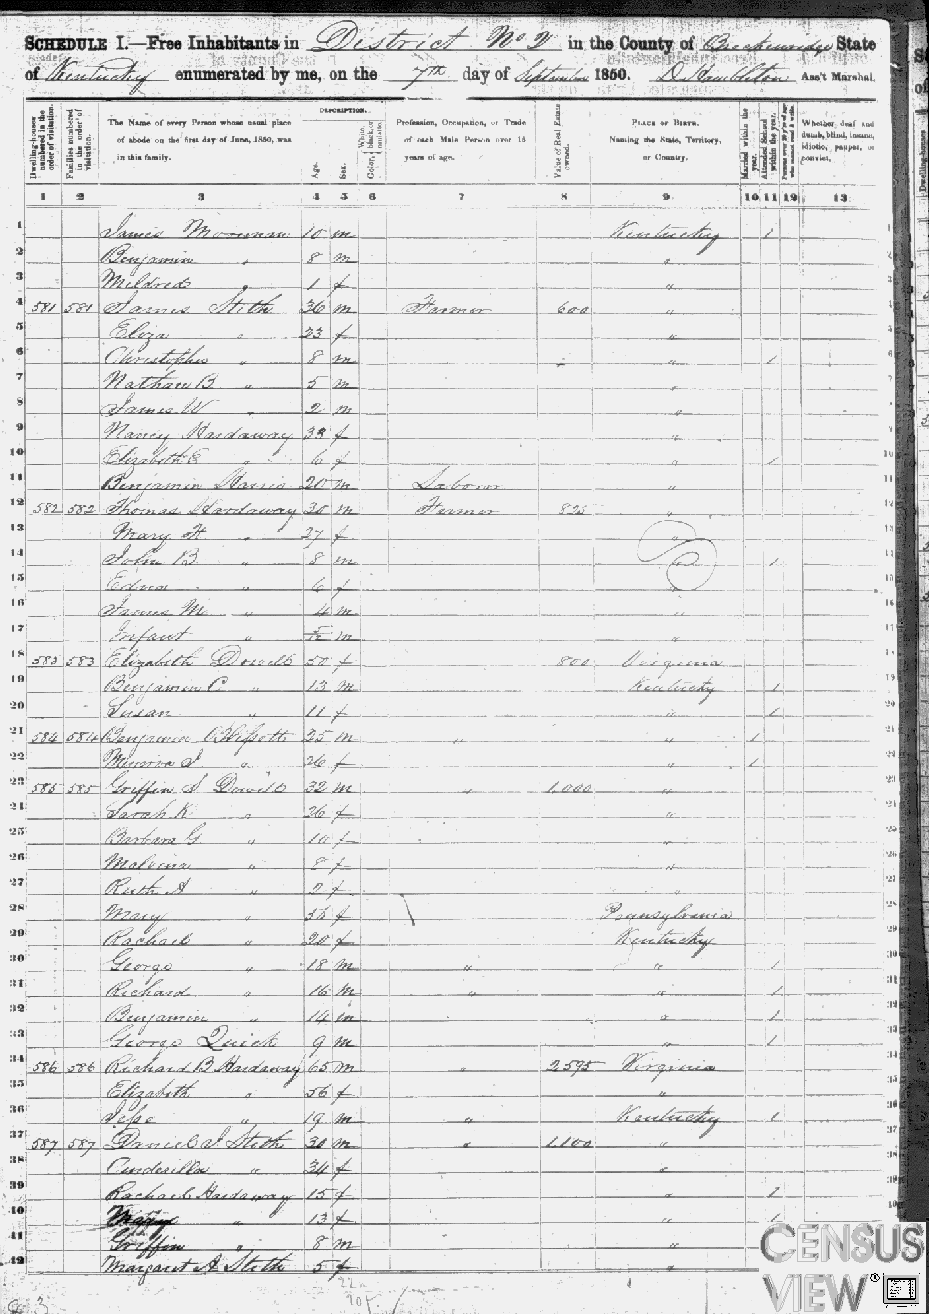 SCHEDULE I.—Free Inhabitants in District No 2 in the County of Breckenridge State
of Kentucky enumerated by me, on the 7th day of September 1850. Ass't Marshal.
DESCRIPTION.
Dwelling-houses numbered in the order of visitation.
Families numbered in the order of visitation.
The Name of every Person whose usual place of abode on the first day of June, 1850, was in this family.
Age.
Sex.
Color, White, black, or mulatto.
Profession, Occupation, or Trade of each Male Person over 15 years of age.
Value of Real Estate owned.
PLACE OF BIRTH. Naming the State, Territory, or Country.
Married within the year.
Attended School within the year.
Persons over 20 y'rs of age who cannot read & write.
Whether deaf and dumb, blind, insane, idiotic, pauper, or convict.
1 2 3 4 5 6 7 8 9 10 11 12 13
1 James 10 m Kentucky 1
2 Benjamin " 8 m "
3 Mildred " 1 f "
4 581 581 James Stith 36 m Farmer 600 "
5 Eliza " 23 f "
6 Christopher " 8 m " 1
7 Nathan B " 5 m "
8 James W " 2 m "
9 Nancy Hardaway f "
10 Elizabeth E " 6 f " 1
11 Benjamin Harris 20 m Laborer "
12 582 582 Thomas Hardaway 30 m Farmer 825 "
13 Mary H " 27 f "
14 John B " 8 m " 1
15 Edna " 6 f "
16 James M " 4 m "
17 Infant " m "
18 583 583 Elizabeth Dowell 50 f 800 Virginia
19 Benjamin C " 13 m Kentucky 1
20 Susan " 11 f " 1
21 584 584 Benjamin 25 m " " 1
22 Minerva J " 26 f 1
23 585 585 Griffin S Dowell 32 m " 1,000 "
24 Sarah K " 26 f "
25 Barbara G " 10 f "
26 Malvina " 8 f "
27 Ruth A " 2 f "
28 Mary " f Pennsylvania
29 Rachael " 20 f Kentucky
30 George " 18 m " " 1
31 Richard " 16 m " " 1
32 Benjamin " 14 m " 1
33 George Quick 9 m " 1
34 586 586 Richard B Hardaway 65 m " 2595 Virginia
35 Elizabeth " 56 f "
36 Jesse " 19 m " Kentucky 1
37 587 587 Daniel J Stith 30 m " 1,100 "
38 Cinderilla " 34 f "
39 Rachael Hardaway 15 f " 1
40 " 13 f " 1
41 Griffin " 8 m "
42 Margaret A Stith 5 f
CENSUS
VIEW®